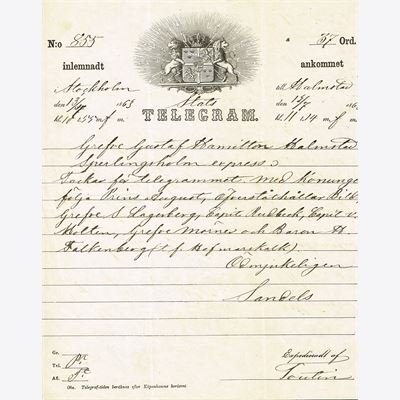 N:o 855
a 37 Ord.
inlemnadt
ankommet
Stockholm
till Halmstad
den 13/7 1863
Stats
den 13/7 186
TELEGRAM.
kl. 11 f m.
kl. 11 f m.
Grefve Gustaf Hamilton Halmstad
Sperlingsholm express.
Tackar för telegrammet. Med Konungen
följa Prins August, Öfverståthållar Bildt
Grefve S Lagerberg, Capit Rudbeck, Capit v.
Holten, Grefve Mörner och Baron
Falkenberg (t. f. Hofmarskalk).
Ödmjukeligen
Sandels
Gr.
Tel.
Af.
Expedieradt af
Obs. Telegraf-tiden beräknas efter Köpenhamns horizont